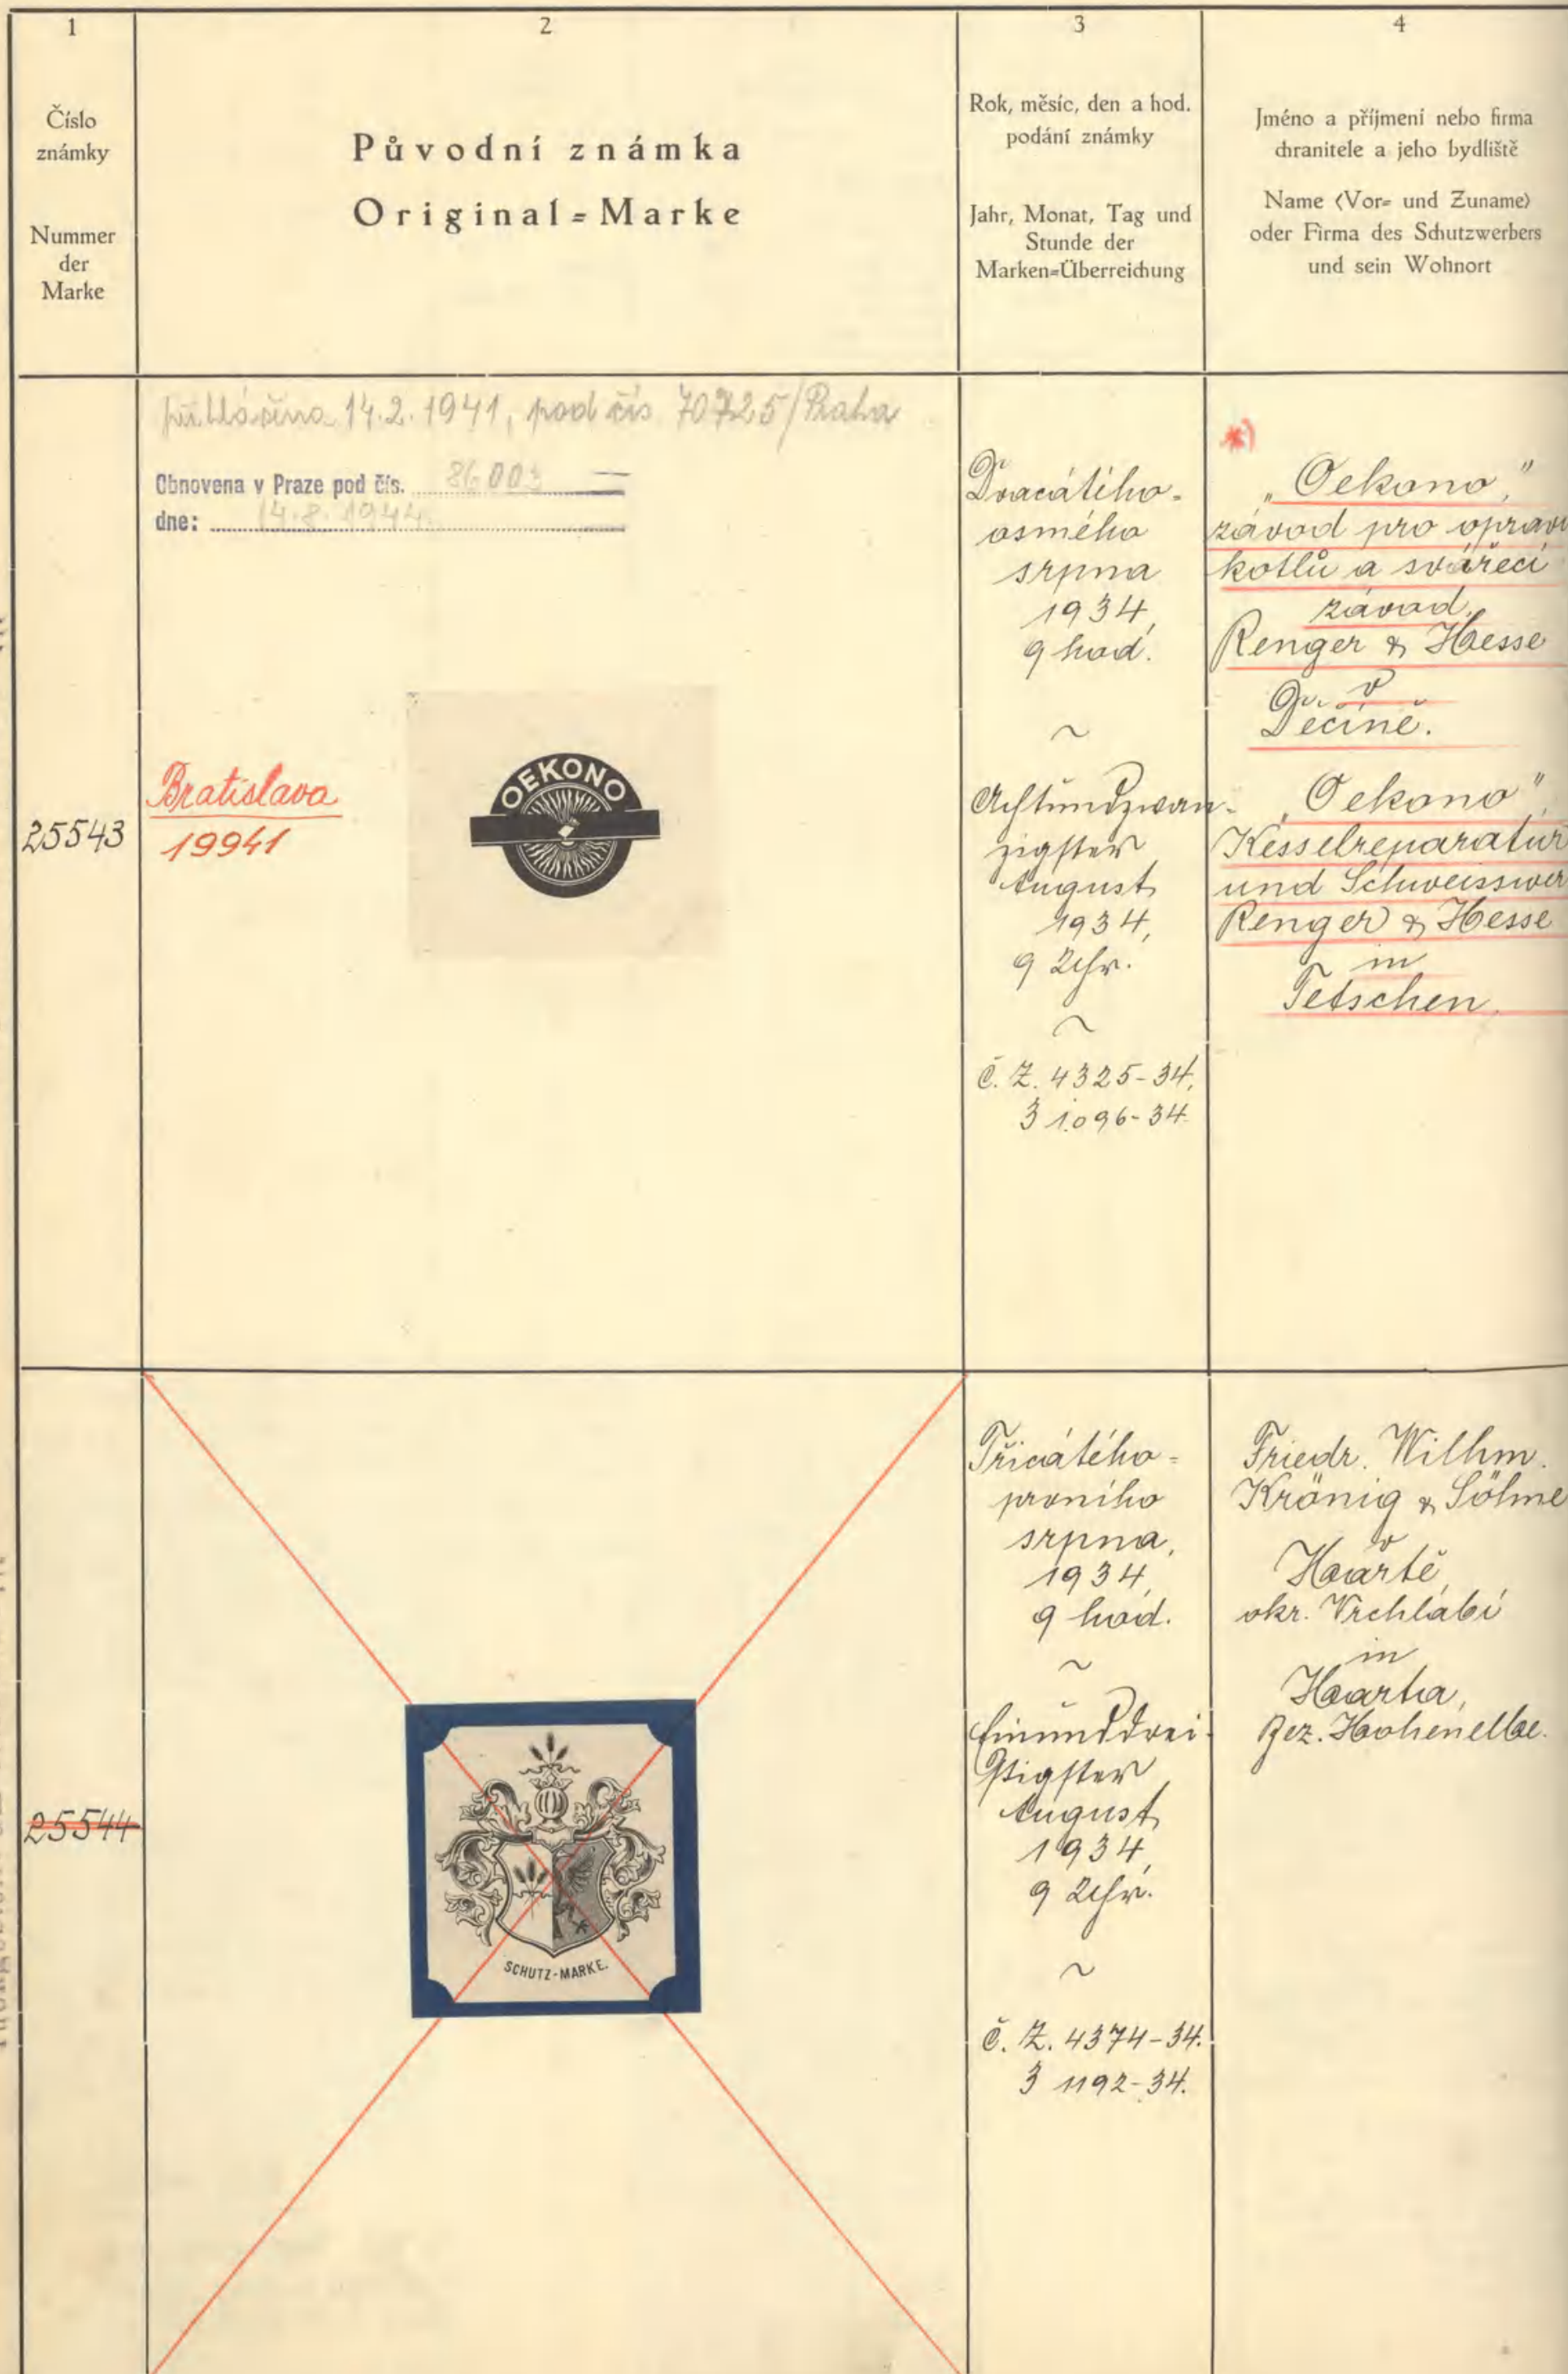 1
Číslo
známky
Nummer
der
Marke
2
Původní známka
Original=Marke
3
Rok, měsíc, den a hod.
podání známky
Jahr, Monat, Tag und
Stunde der
Marken=Überreichung
4
Jméno a příjmení nebo firma
chranitele a jeho bydliště
Name (Vor= und Zuname)
oder Firma des Schutzwerbers
und sein Wohnort
25543
14.2.1941, pod čís 70725/Praha
Obnovena v Praze pod čís. 86003
dne: 14.8.1944
Bratislava
19941
OEKONO
Dvacátého-
osmého
srpna
1934,
9 hod.
~
Achtundzwan-
zigster
August
1934,
9 Uhr.
~
č. Z. 4325-34,
3 1096-34.
*)
"Oekono",
závod pro oprav
kotlů a svářecí
závod,
Renger & Hesse
v
Děčíně.
"Oekono",
Kesselreparatur
und Schweisswer
Renger & Hesse
in
Tetschen.
25544
SCHUTZ-MARKE.
Třicátého=
prvního
srpna,
1934,
9 hod.
~
Einunddrei-
ßigster
August
1934,
9 Uhr.
~
č. Z. 4374-34.
3 1192-34.
Friedr. Wilhm.
Krönig & Söhne
v
Haartě,
okr. Vrchlabí
in
Haarta,
Bez. Hohenelbe.